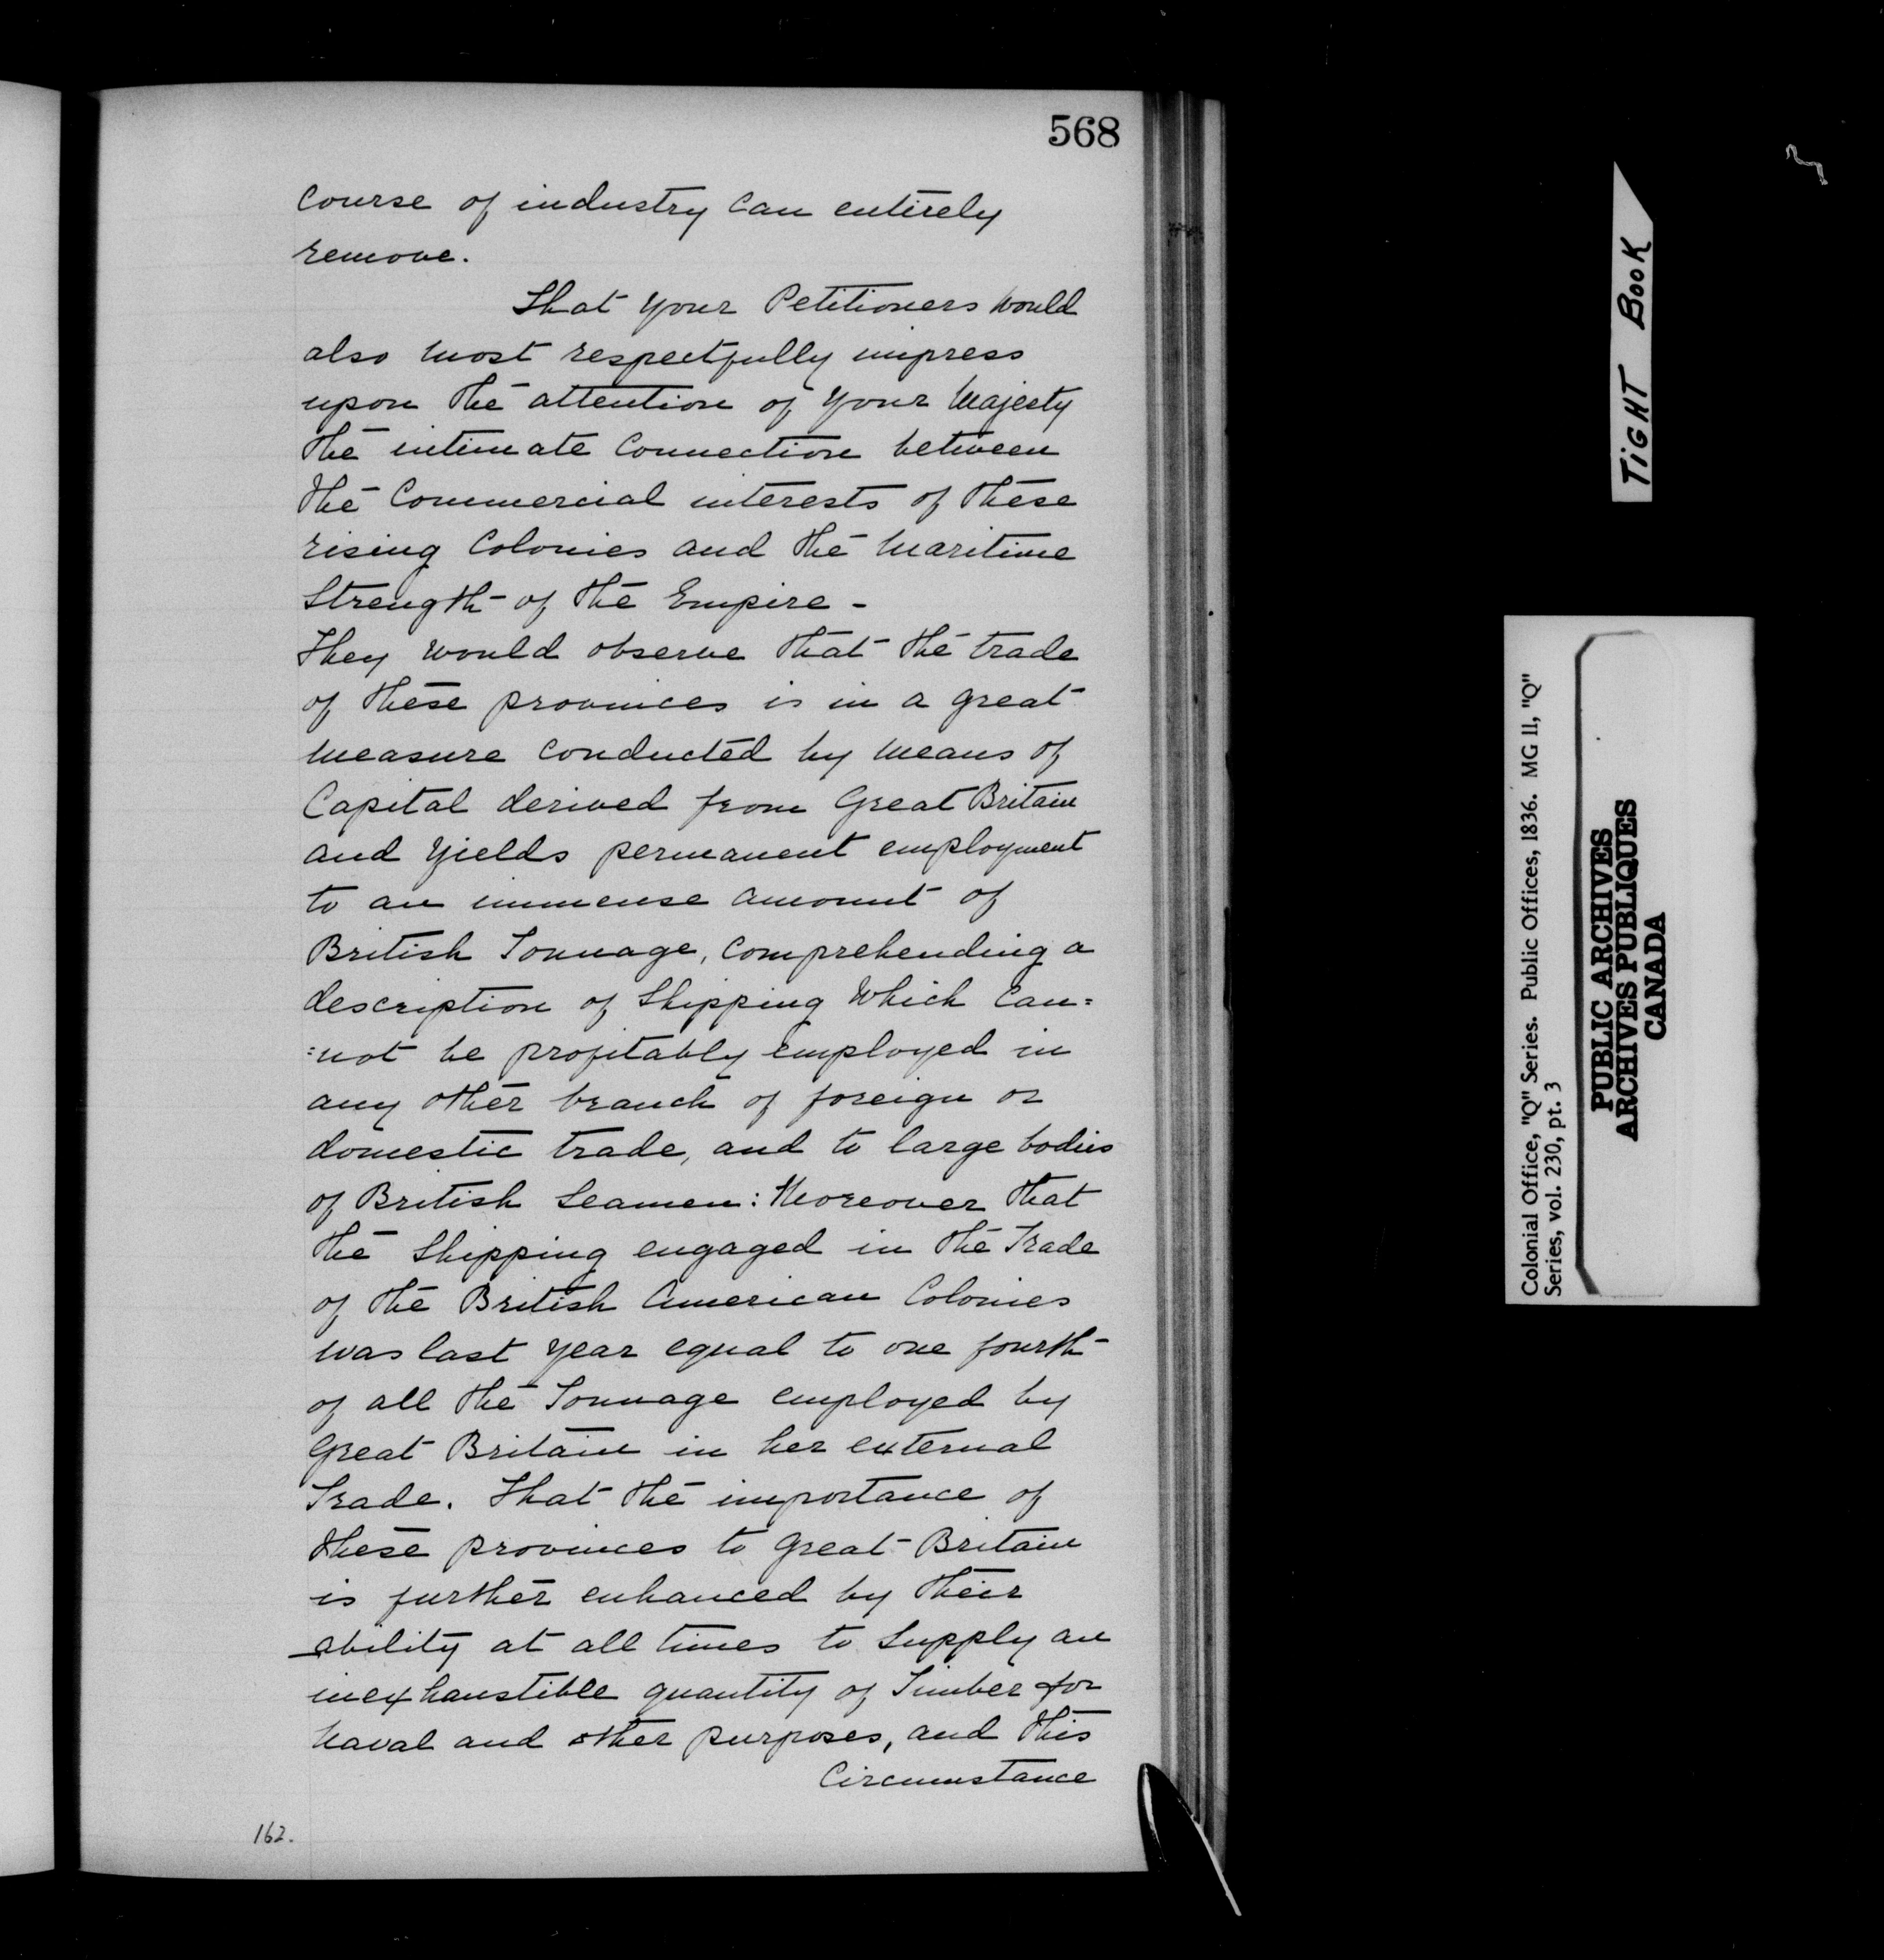 568
Course of industry Can entirely
remove.
That your Petitioners would
also most respectfully impress
upon the attention of Your Majesty
the intimate Connection between
the Commercial interests of these
rising Colonies and the Maritime
Strength of the Empire -
They would observe that the trade
of these provinces is in a great
measure conducted by means of
Capital derived from Great Britain
and yields permanent employment
to an immense amount of
British Tonnage, comprehending a
description of Shipping which Can=
=not be profitably employed in
any other branch of foreign or
domestic trade, and to large bodies
of British Seamen: Moreover that
the Shipping engaged in the Trade
of the British American Colonies
was last year equal to one fourth
of all the Tonnage employed by
Great Britain in her external
Trade. That the importance of
these provinces to Great Britain
is further enhanced by their
ability at all times to Supply an
inexhaustible quantity of Timber for
Naval and other purposes, and this
Circumstance
162.
TIGHT BOOK
Colonial Office, "Q" Series. Public Offices, 1836. MG 11, "Q"
Series, vol. 230, pt. 3
PUBLIC ARCHIVES
ARCHIVES PUBLIQUES
CANADA